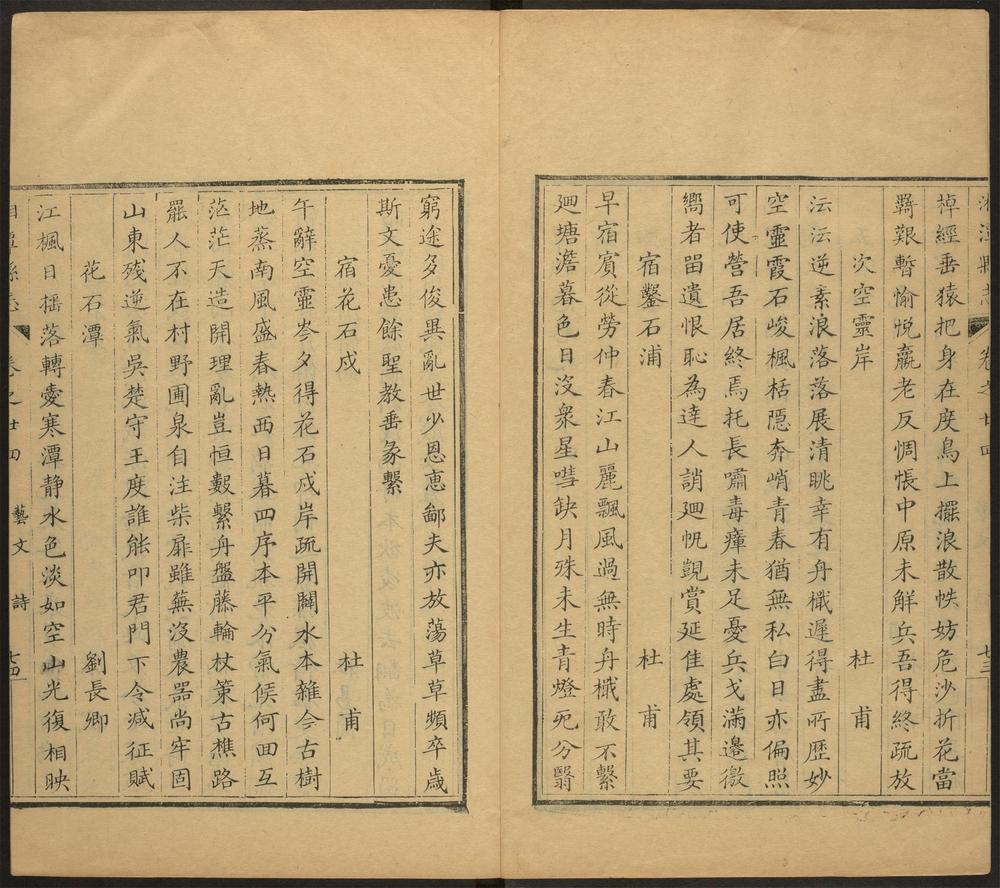 湘潭縣志 卷之廿四 七三
棹經垂猿把身在度鳥上擺浪散帙妨危沙折花當
羇艱暫愉悅羸老反惆悵中原未解兵吾得終疏放
次空靈岸 杜甫
沄沄逆素浪落落展清眺幸有舟檝遲得盡所歷妙
空靈霞石峻楓栝隱奔峭青春猶無私白日亦偏照
可使營吾居終焉托長嘯毒瘴未足憂兵戈滿邊徼
嚮者留遺恨恥為達人誚廻帆覬賞延佳處領其要
宿鑿石浦 杜甫
早宿賓從勞仲春江山麗飄風過無時舟檝敢不繫
廻塘澹暮色日沒衆星嘒缺月殊未生青燈死分翳
窮途多俊異亂世少恩惠鄙夫亦放蕩草草頻卒歲
斯文憂患餘聖教垂彖繫
宿花石戍 杜甫
午辭空靈岑夕得花石戍岸疏開闢水本雜今古樹
地蒸南風盛春熱西日暮四序本平分氣候何回互
茫茫天造開理亂豈恒數繫舟盤藤輪杖策古樵路
罷人不在村野圃泉自注柴扉雖蕪沒農器尚牢固
山東殘逆氣吳楚守王度誰能叩君門下令減征賦
花石潭 劉長卿
江楓日搖落轉愛寒潭静水色淡如空山光復相映
湘潭縣志 卷之廿四 藝文 詩 七四